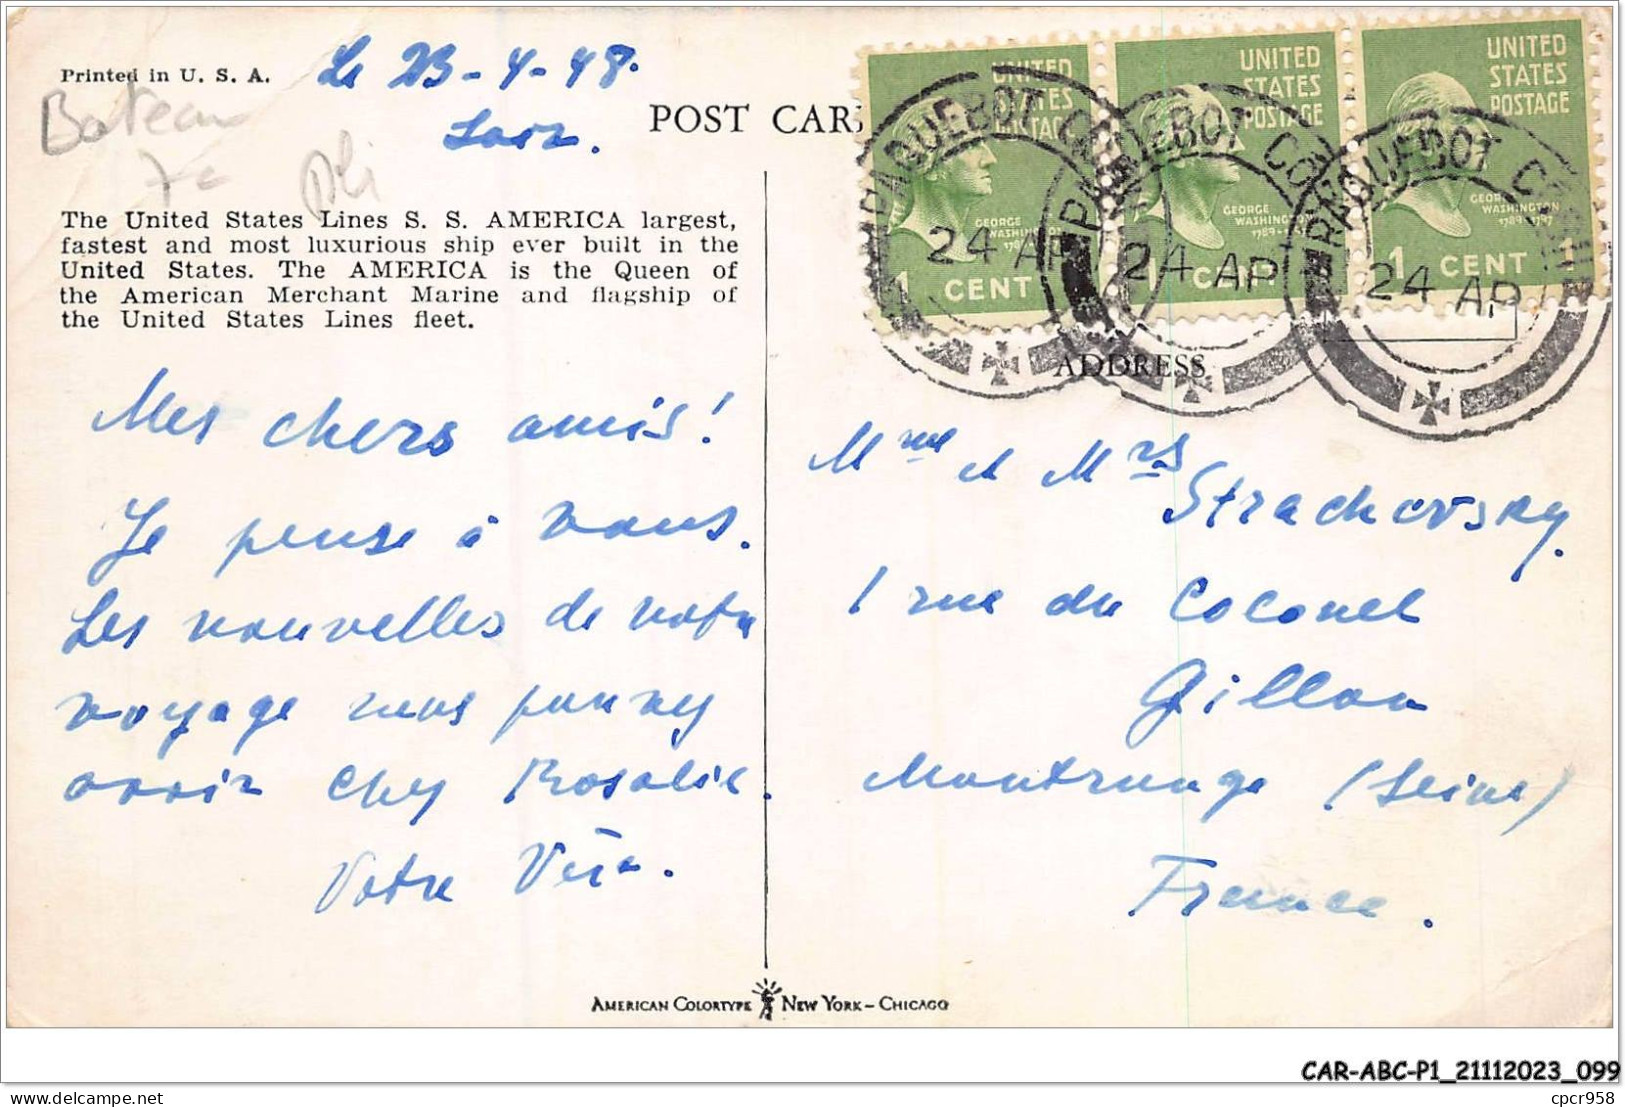 Printed in U. S. A.
Le 23-4-48.
Soir.
Bateau
POST CAR
UNITED
STATES
POSTAGE
GEORGE
WASHINGTON
1 CENT
UNITED
STATES
POSTAGE
GEORGE
WASHINGTON
1789-
1 CENT
UNITED
STATES
POSTAGE
GEORGE
WASHINGTON
1789-1797
1 CENT 1
PAQUEBOT
24 AP
PAQUEBOT
24 AP
PAQUEBOT
24 AP
The United States Lines S. S. AMERICA largest,
fastest and most luxurious ship ever built in the
United States. The AMERICA is the Queen of
the American Merchant Marine and flagship of
the United States Lines fleet.
ADDRESS
Mes chers amis!
Je pense à vous.
Les nouvelles de notre
voyage vous pouvez
avoir chez Rosalie.
Votre Véra.
Mme et Mrs
Strachovsky.
1 rue du Colonel
Gillon
Montrouge (Seine)
France.
AMERICAN COLORTYPE NEW YORK - CHICAGO
CAR-ABC-P1_21112023_099
cpcr958